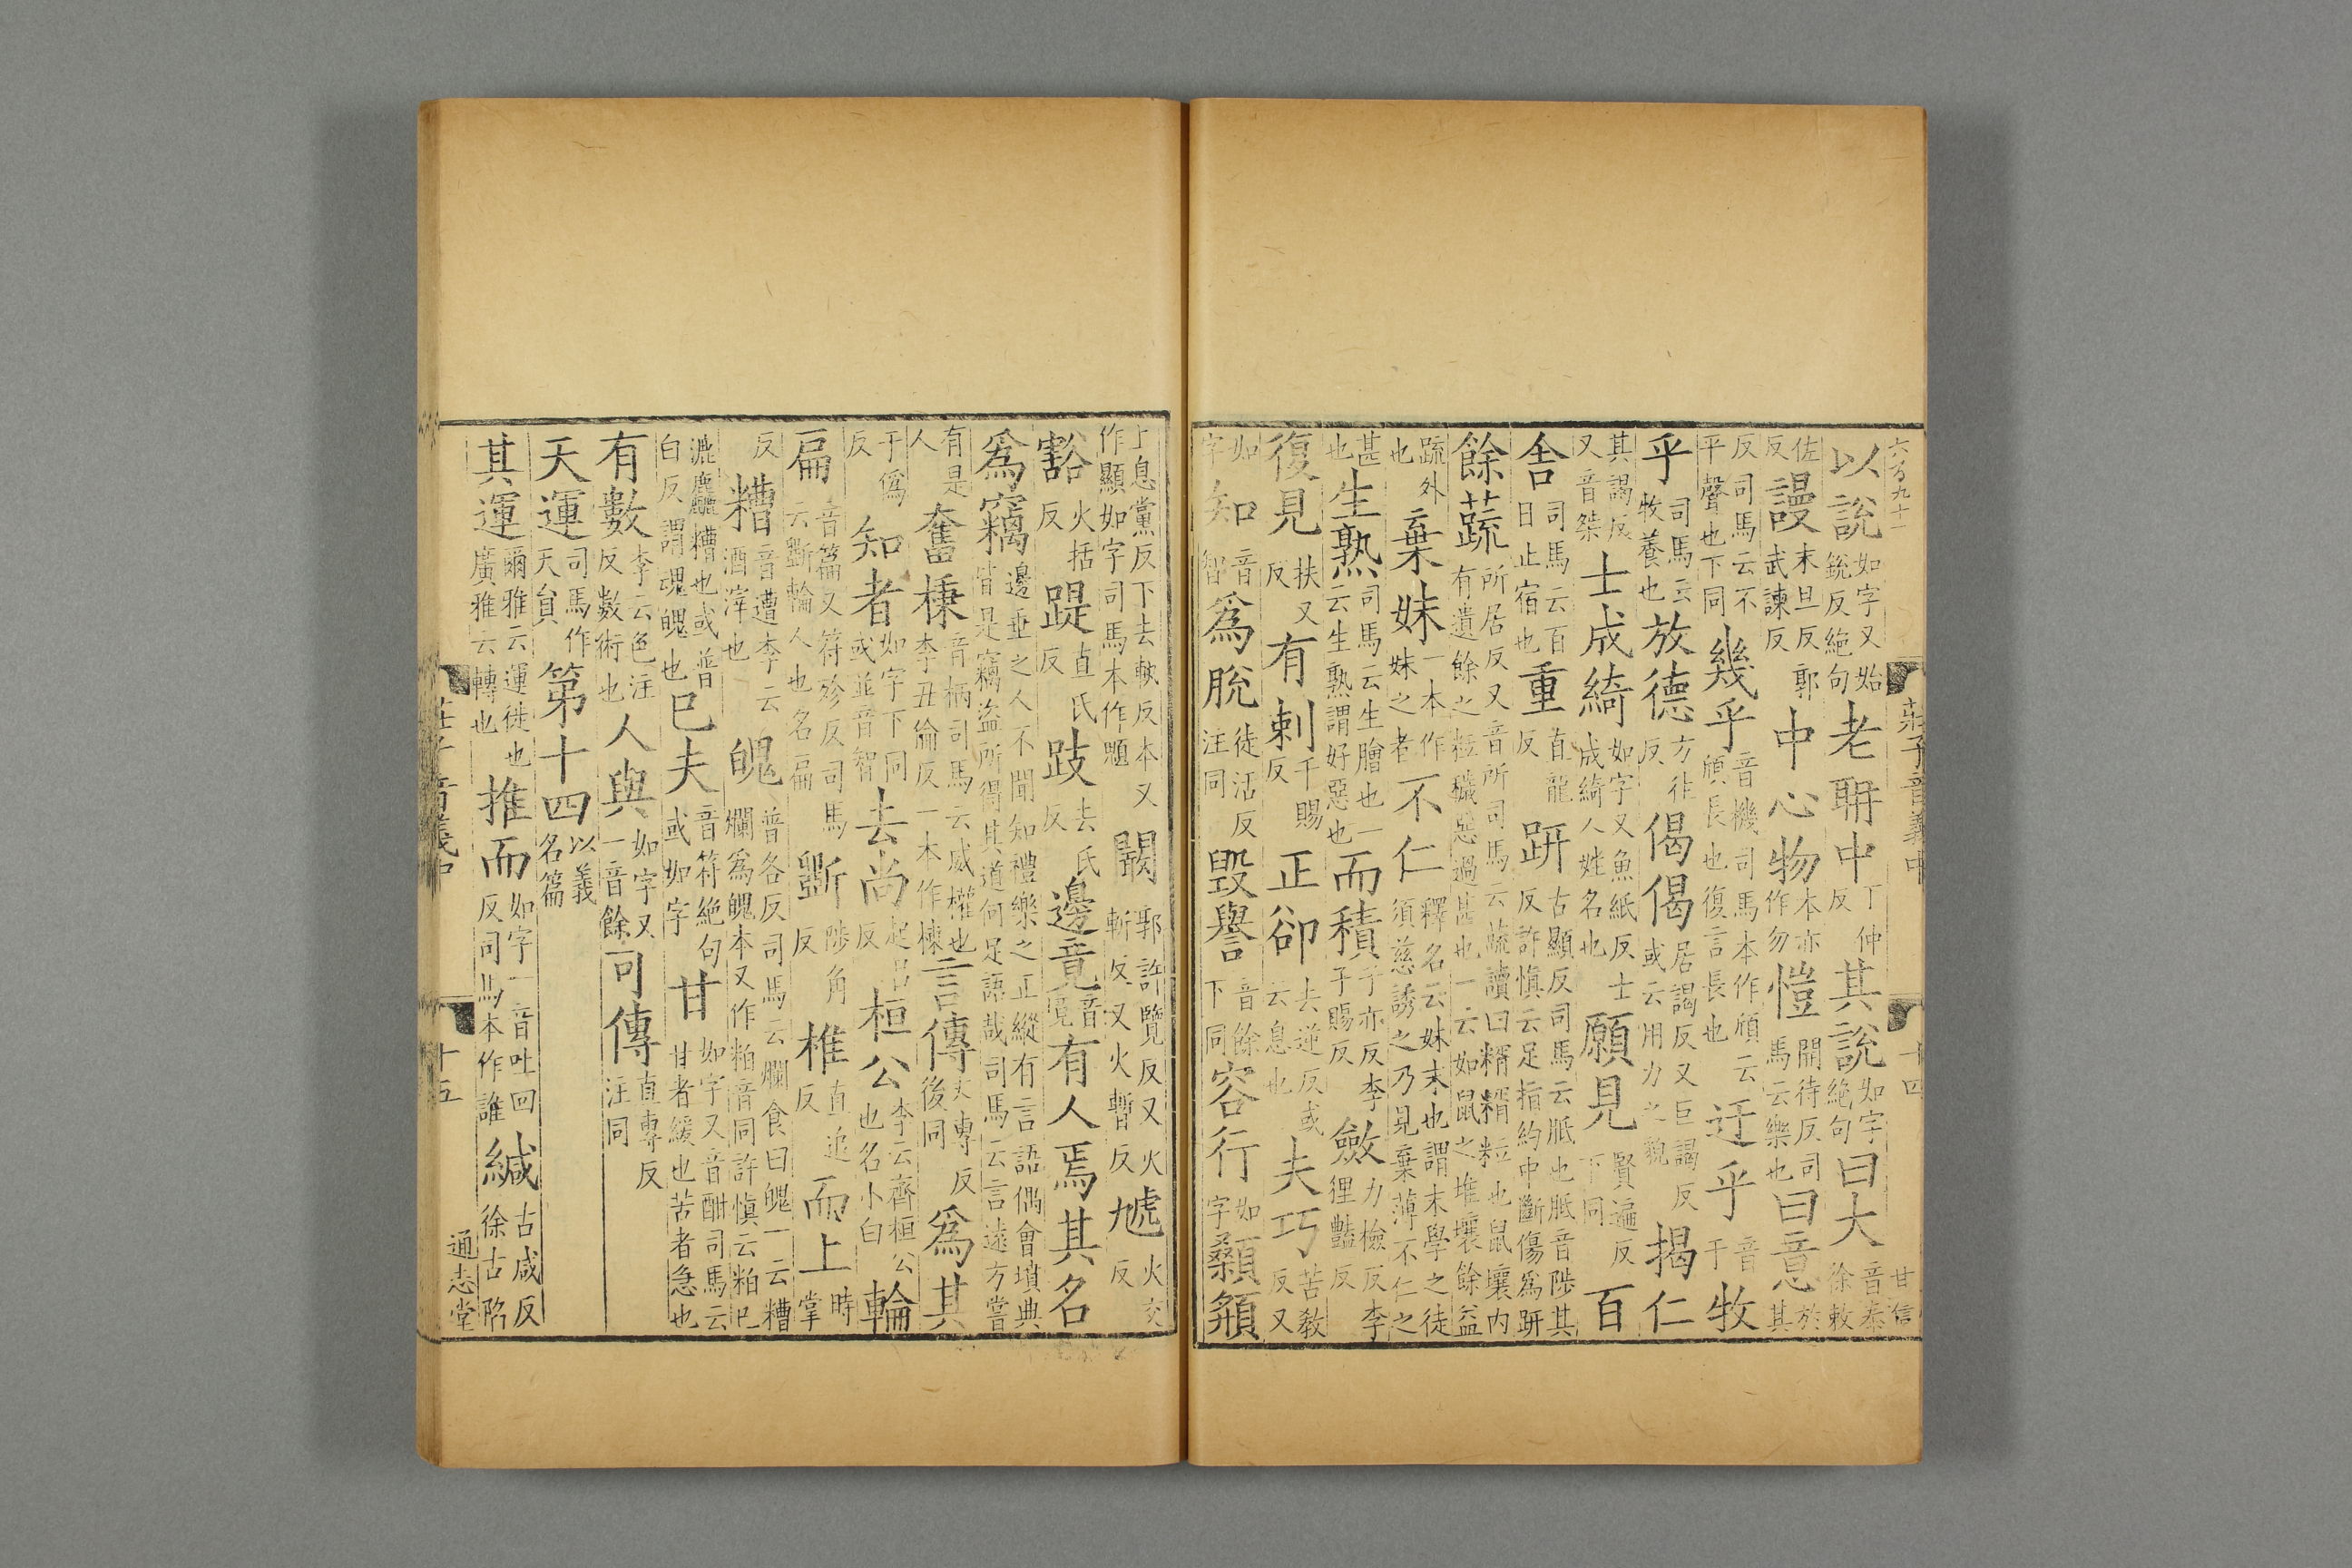 莊子音義中
十四
以說如字又始銳反絕句老聃中丁仲反其說如字絕句曰大音泰徐敕
佐反謾末旦反郭武諫反中心物本亦作勿愷開待反司馬云樂也曰意於其
反司馬云不平聲也下同幾乎音機司馬本作頎云頎長也復言長也迂乎音于牧
乎司馬云牧養也放德方往反偈偈居謁反又巨謁反或云用力之貌揭仁
其謁反又音桀士成綺如字又魚紙反士成綺人姓名也願見賢遍反下同百
舍司馬云百日止宿也重直龍反趼古顯反司馬云胝也胝音陟其反許慎云足指約中斷傷為趼
餘蔬所居反又音所司馬云蔬讀曰糈糈粒也鼠壤內有遺餘之粒穢惡過甚也一云如鼠之堆壤餘益
蔬外也棄妹一本作妹之者不仁釋名云妹末也謂末學之徒須慈誘之乃見棄薄不仁之
甚也生熟司馬云生膾也一云生熟謂好惡也而積子亦反李子賜反斂力檢反李狸豔反
復見扶又反有剌千賜反正卻去逆反或云息也夫巧苦教反又
如字知音智為脫徒活反注同毀譽音餘下同容行如字顙頯
上息黨反下去軌反本又作顯如字司馬本作題闞郭許覽反又火斬反又火暫反虓火交反
豁火括反踶直氏反跂去氏反邊竟音境有人焉其名
為竊邊垂之人不聞知禮樂之正縱有言語偶會墳典皆是竊盜所得其道何足語哉司馬云言遠方嘗
有是人奮棅音柄司馬云威權也李丑倫反一本作棟言傳丈專反後同為其
于偽反知者如字下同或並音智去尚起呂反桓公李云齊桓公也名小白輪
扁音篇又符殄反司馬云斲輪人也名扁斲陟角反椎直追反而上時掌
反糟音遭李云酒滓也魄普各反司馬云爛食曰魄一云糟爛為魄本又作粕音同許慎云粕已
漉麤糟也或普白反謂魂魄也已夫音符絕句或如字甘如字又音酣司馬云甘者緩也苦者急也
有數李云色注反數術也人與如字又一音餘可傳直專反注同
天運司馬作天員第十四以義名篇
其運爾雅云運徙也廣雅云轉也推而如字一音吐回反司馬本作誰緘古咸反徐古陷
十五
通志堂